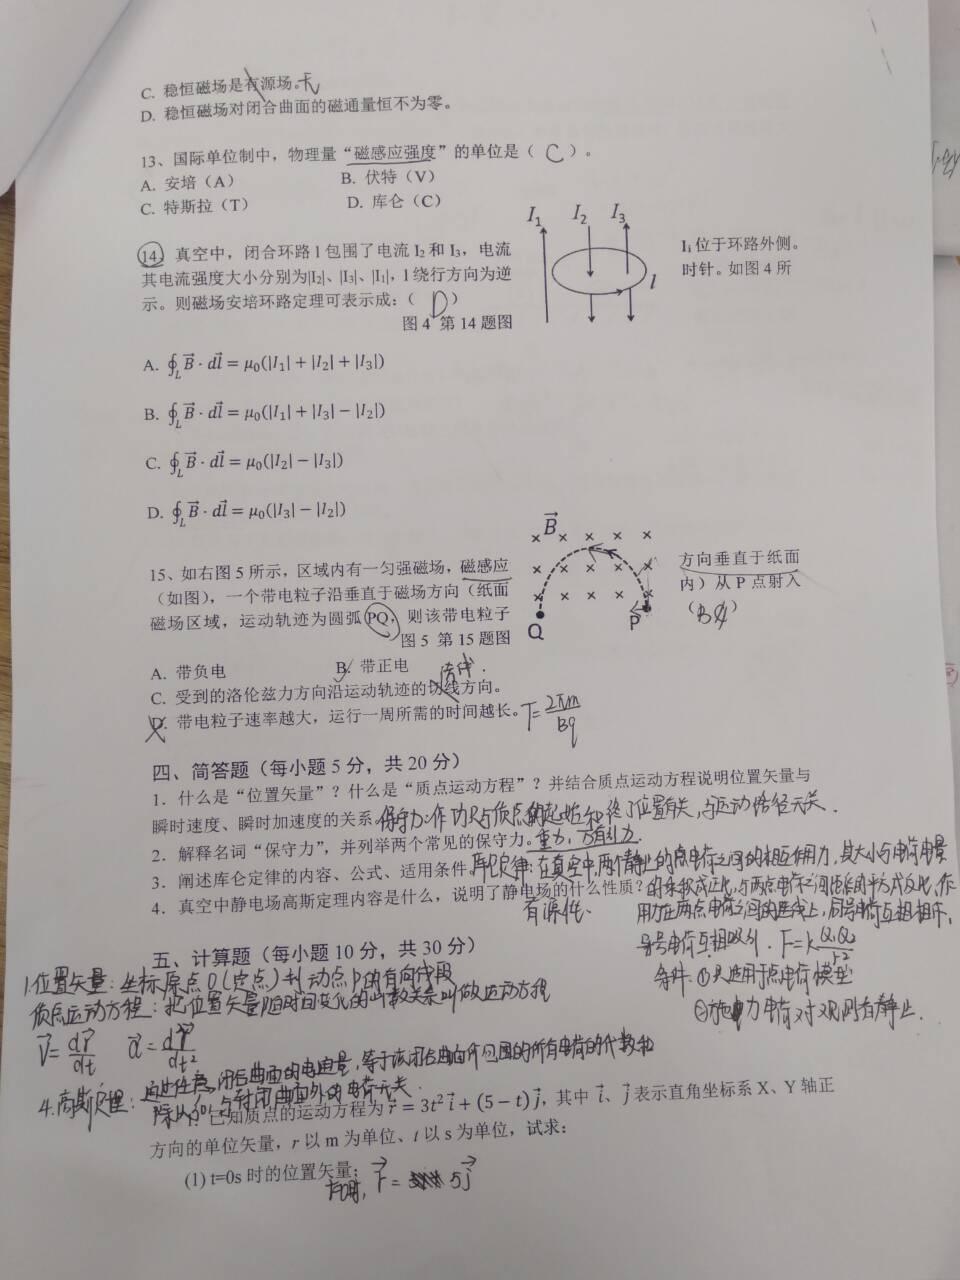 C. 稳恒磁场是有源场。无
D. 稳恒磁场对闭合曲面的磁通量恒不为零。
13、国际单位制中，物理量“磁感应强度”的单位是（ C ）。
A. 安培（A） B. 伏特（V）
C. 特斯拉（T） D. 库仑（C）
I₁ I₂ I₃
14、真空中，闭合环路 l 包围了电流 I₂ 和 I₃，电流 I₁ 位于环路外侧。
其电流强度大小分别为|I₂|、|I₃|、|I₁|，l 绕行方向为逆 时针。如图 4 所
l
示。则磁场安培环路定理可表示成：（ D ）
图 4 第 14 题图
A. ∮_L B⃗ · dl⃗ = μ₀(|I₁| + |I₂| + |I₃|)
B. ∮_L B⃗ · dl⃗ = μ₀(|I₁| + |I₃| − |I₂|)
C. ∮_L B⃗ · dl⃗ = μ₀(|I₂| − |I₃|)
D. ∮_L B⃗ · dl⃗ = μ₀(|I₃| − |I₂|)
B⃗
15、如右图 5 所示，区域内有一匀强磁场，磁感应 方向垂直于纸面
（如图），一个带电粒子沿垂直于磁场方向（纸面 内）从 P 点射入
磁场区域，运动轨迹为圆弧 PQ，则该带电粒子 （ B ）
Q P
图 5 第 15 题图
A. 带负电 B. 带正电
C. 受到的洛伦兹力方向沿运动轨迹的切线方向。
D. 带电粒子速率越大，运行一周所需的时间越长。 T=2πm/Bq
四、简答题（每小题 5 分，共 20 分）
1．什么是“位置矢量”？什么是“质点运动方程”？并结合质点运动方程说明位置矢量与
瞬时速度、瞬时加速度的关系 保守力：作功只与质点的起始和终了位置有关，与运动路径无关．
2．解释名词“保守力”，并列举两个常见的保守力。重力，万有引力．
3．阐述库仑定律的内容、公式、适用条件 库仑定律：在真空中，两个静止的点电荷之间的相互作用力，其大小与电荷电量
4．真空中静电场高斯定理内容是什么，说明了静电场的什么性质？的乘积成正比，与两点电荷之间距离的平方成反比，作
有源性、 用力在两点电荷之间的连线上，同号电荷互相相斥，
异号电荷互相吸引．F=k Q₁Q₂/r²
五、计算题（每小题 10 分，共 30 分）
条件：①只适用于点电荷模型
1.位置矢量：坐标原点O（定点）到动点P的有向线段
②施力电荷对观测者静止．
质点运动方程：把位置矢量随时间变化的函数关系叫做运动方程
v⃗=dr⃗/dt a⃗=d²r⃗/dt²
4.高斯定理：通过任意闭合曲面的电通量，等于该闭合曲面所包围的所有电荷的代数和
除以ε0，与封闭曲面外的电荷无关．
已知质点的运动方程为 r⃗ = 3t² i⃗ + (5 − t) j⃗，其中 i⃗、j⃗ 表示直角坐标系 X、Y 轴正
方向的单位矢量，r 以 m 为单位、t 以 s 为单位，试求：
(1) t=0s 时的位置矢量；
t=0时，r⃗ = 5j⃗